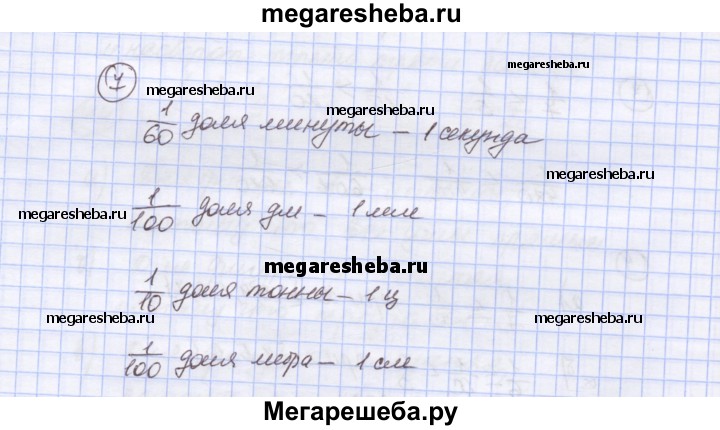 megaresheba.ru
7
megaresheba.ru
megaresheba.ru
megaresheba.ru
1/60 доля минуты – 1 секунда
megaresheba.ru
megaresheba.ru
megaresheba.ru
1/100 доля дм – 1 мм
megaresheba.ru
1/10 доля тонны – 1 ц
megaresheba.ru
megaresheba.ru
megaresheba.ru
1/100 доля метра – 1 см
Мегарешеба.ру